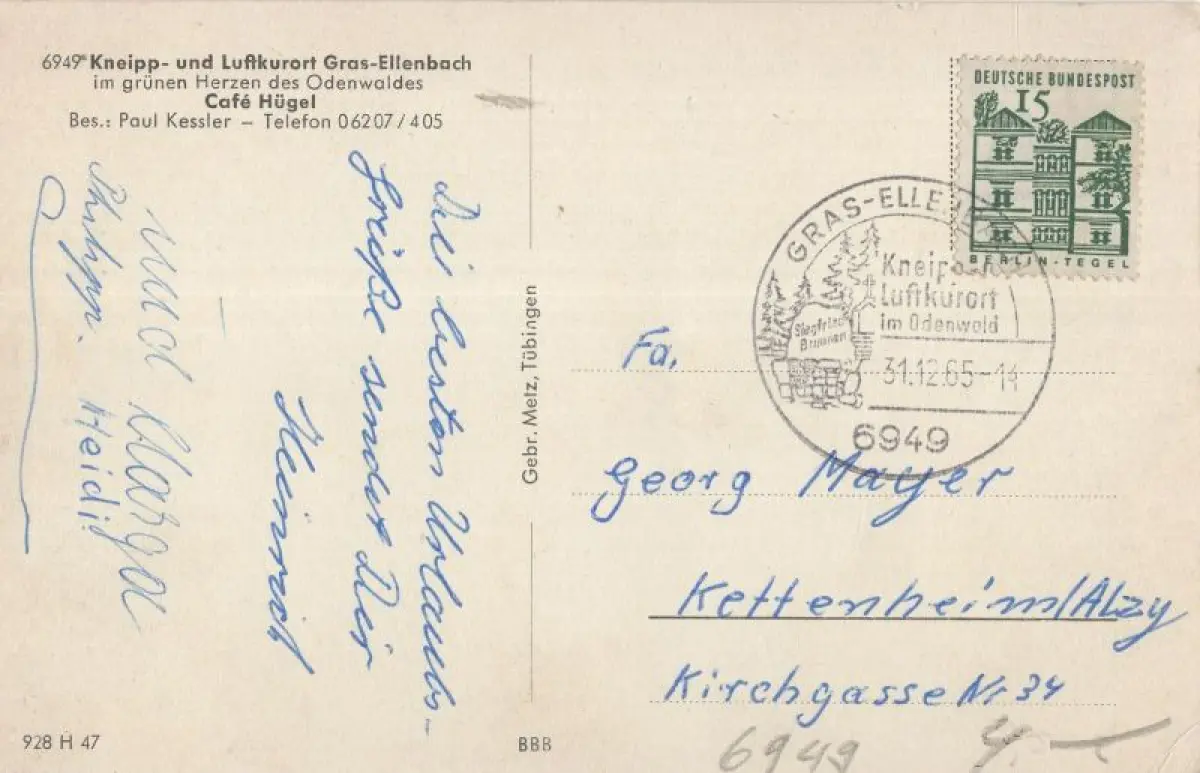 6949* Kneipp- und Luftkurort Gras-Ellenbach
im grünen Herzen des Odenwaldes
Café Hügel
Bes.: Paul Kessler – Telefon 06207/405
Die besten Urlaubs-
Grüße sendet Dir
Heinrich
und Marga
Philipp. Heidi
Gebr. Metz, Tübingen
DEUTSCHE BUNDESPOST
15
BERLIN-TEGEL
GRAS-ELLE
Kneip
Luftkurort
im Odenwald
Siegfried
Brunnen
31.12.65-14
6949
Fa.
Georg Mayer
Kettenheim/Alzy
Kirchgasse Nr 34
928 H 47
BBB
6949
4.-